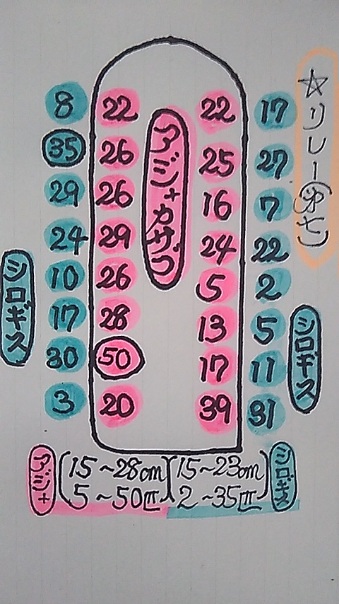 ☆リレー(中七)
アジ+カサゴ
8 22 22 17
35 26 25 27
29 26 16 7
24 29 24 22
10 26 5 2
17 28 13 5
30 50 17 11
3 20 39 31
シロギス
シロギス
アジ+ (15~28cm 5~50匹)
(15~23cm 2~35匹) シロギス